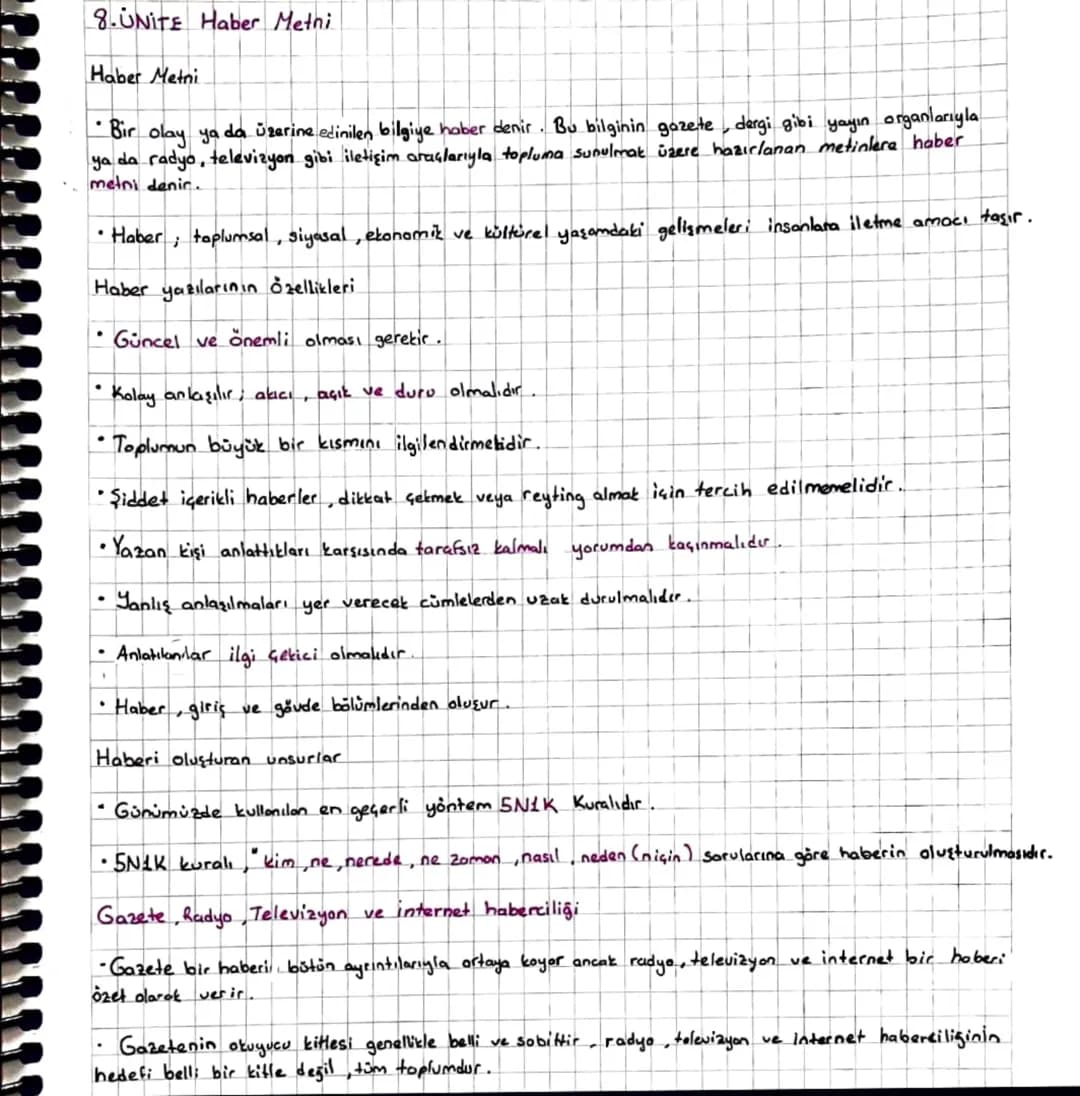 8.ÜNİTE Haber Metni
Haber Metni
• Bir olay ya da üzerine edinilen bilgiye haber denir. Bu bilginin gazete, dergi gibi yayın organlarıyla
ya da radyo, televizyon gibi iletişim araçlarıyla topluma sunulmak üzere hazırlanan metinlere haber
metni denir.
• Haber; toplumsal, siyasal, ekonomik ve kültürel yaşamdaki gelişmeleri insanlara iletme amacı taşır.
Haber yazılarının özellikleri
• Güncel ve önemli olması gerekir.
• Kolay anlaşılır; akıcı, açık ve duru olmalıdır.
• Toplumun büyük bir kısmını ilgilendirmelidir.
• Şiddet içerikli haberler, dikkat çekmek veya reyting almak için tercih edilmemelidir.
• Yazan kişi anlattıkları karşısında tarafsız kalmalı yorumdan kaçınmalıdır.
• Yanlış anlaşılmaları yer verecek cümlelerden uzak durulmalıdır.
• Anlatılanlar ilgi çekici olmalıdır.
• Haber, giriş ve gövde bölümlerinden oluşur.
Haberi oluşturan unsurlar
• Günümüzde kullanılan en geçerli yöntem 5N1K Kuralıdır.
• 5N1K kuralı, "kim, ne, nerede, ne zaman, nasıl, neden (niçin) sorularına göre haberin oluşturulmasıdır.
Gazete, Radyo, Televizyon ve internet haberciliği
• Gazete bir haberi bütün ayrıntılarıyla ortaya koyar ancak radyo, televizyon ve internet bir haberi
özet olarak verir.
• Gazetenin okuyucu kitlesi genellikle belli ve sabittir, radyo, televizyon ve internet haberciliğinin
hedefi belli bir kitle değil, tüm toplumdur.